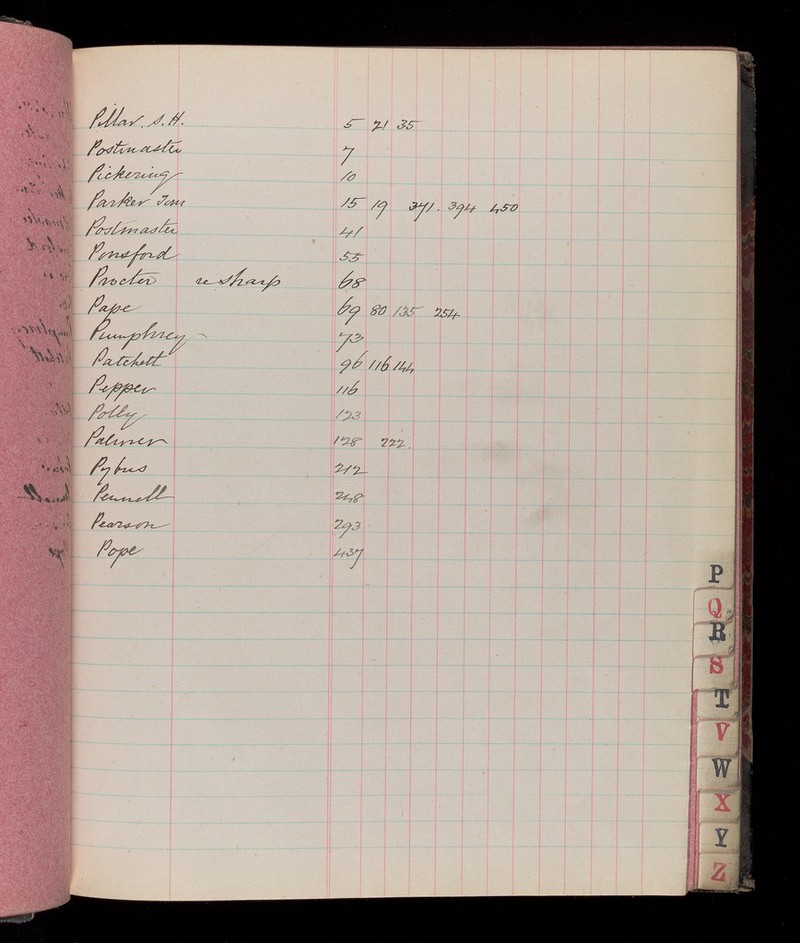 Pillar. S. H. 5 21 35
Postmaster 7
Pickering 10
Parker Tom 15 19 371. 394 450
Postmaster 41
Ponsford 55
Procter re Sharp 68
Pape 69 80 135 254
Pumphrey 73
Patchett 96 116 144
Pepper 116
Polly 123
Palmer 128 222.
Pybus 212
Pennell 248
Pearson 293
Pope 437
P
Q
R
S
T
V
W
X
Y
Z